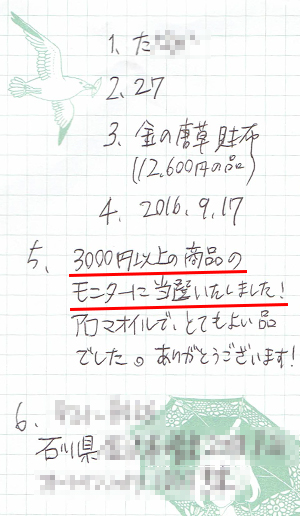 1、た
2、27
3、金の唐草財布
(12,600円の品)
4、2016.9.17
5、3000円以上の商品の
モニターに当選いたしました!
アロマオイルで、とてもよい品
でした。ありがとうございます!
6、
石川県